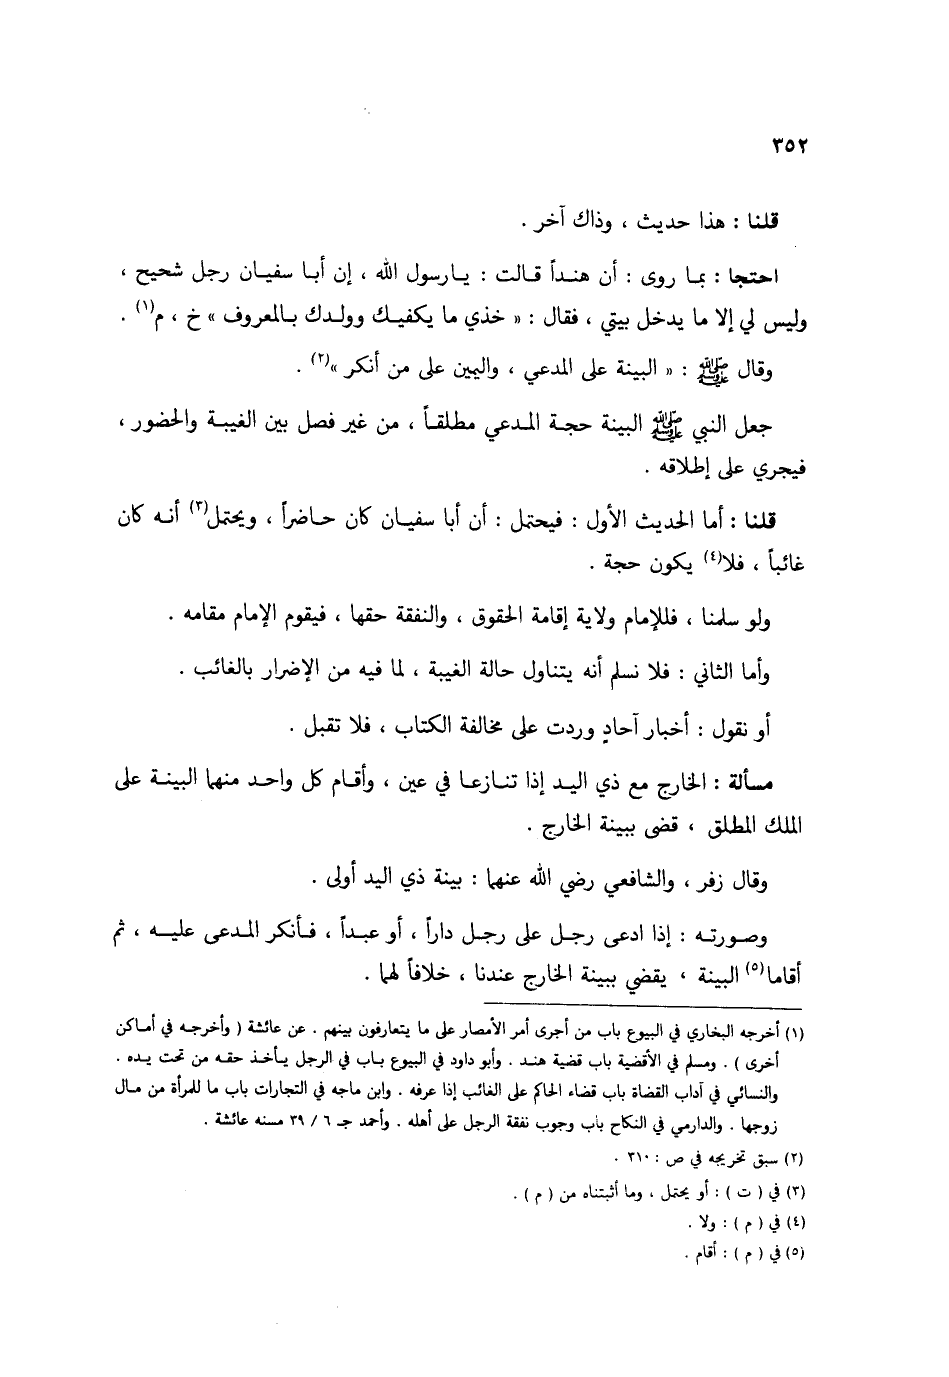 ٣٥٢
قلنا : هذا حديث ، وذاك آخر .
احتجا : بما روى : أن هنداً قالت : يارسول الله ، إن أبا سفيان رجل شحيح ،
وليس لي إلا ما يدخل بيتي ، فقال : « خذي ما يكفيك وولدك بالمعروف » خ ، م(١) .
وقال ﷺ : « البينة على المدعي ، واليمين على من أنكر »(٢) .
جعل النبي ﷺ البينة حجة المدعي مطلقاً ، من غير فصل بين الغيبة والحضور ،
فيجري على إطلاقه .
قلنا : أما الحديث الأول : فيحتمل : أن أبا سفيان كان حاضراً ، ويحتمل(٣) أنه كان
غائباً ، فلا(٤) يكون حجة .
ولو سلمنا ، فللإمام ولاية إقامة الحقوق ، والنفقة حقها ، فيقوم الإمام مقامه .
وأما الثاني : فلا نسلم أنه يتناول حالة الغيبة ، لما فيه من الإضرار بالغائب .
أو نقول : أخبار آحادٍ وردت على مخالفة الكتاب ، فلا تقبل .
مسألة : الخارج مع ذي اليد إذا تنازعا في عين ، وأقام كل واحد منهما البينة على
الملك المطلق ، قضى ببينة الخارج .
وقال زفر ، والشافعي رضي الله عنهما : بينة ذي اليد أولى .
وصورته : إذا ادعى رجل على رجل داراً ، أو عبداً ، فأنكر المدعى عليه ، ثم
أقاما(٥) البينة ، يقضي ببينة الخارج عندنا ، خلافاً لهما .
(١) أخرجه البخاري في البيوع باب من أجرى أمر الأمصار على ما يتعارفون بينهم . عن عائشة ( وأخرجه في أماكن
أخرى ) . ومسلم في الأقضية باب قضية هند . وأبو داود في البيوع باب في الرجل يأخذ حقه من تحت يده .
والنسائي في آداب القضاة باب قضاء الحاكم على الغائب إذا عرفه . وابن ماجه في التجارات باب ما للمرأة من مال
زوجها . والدارمي في النكاح باب وجوب نفقة الرجل على أهله . وأحمد جـ ٦ / ٣٩ مسنه عائشة .
(٢) سبق تخريجه في ص : ٣١٠ .
(٣) في ( ت ) : أو يحتمل ، وما أثبتناه من ( م ) .
(٤) في ( م ) : ولا .
(٥) في ( م ) : أقام .